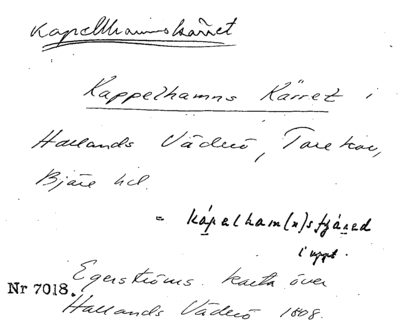 Kapellhamnskärret
Kappelhamns Kärret i
Hallands Väderö, Torekov,
Bjäre hd.
= kápelham(n)stjáred
i uppt.
Egerströms karta över
Nr 7018.
Hallands Väderö 1808.